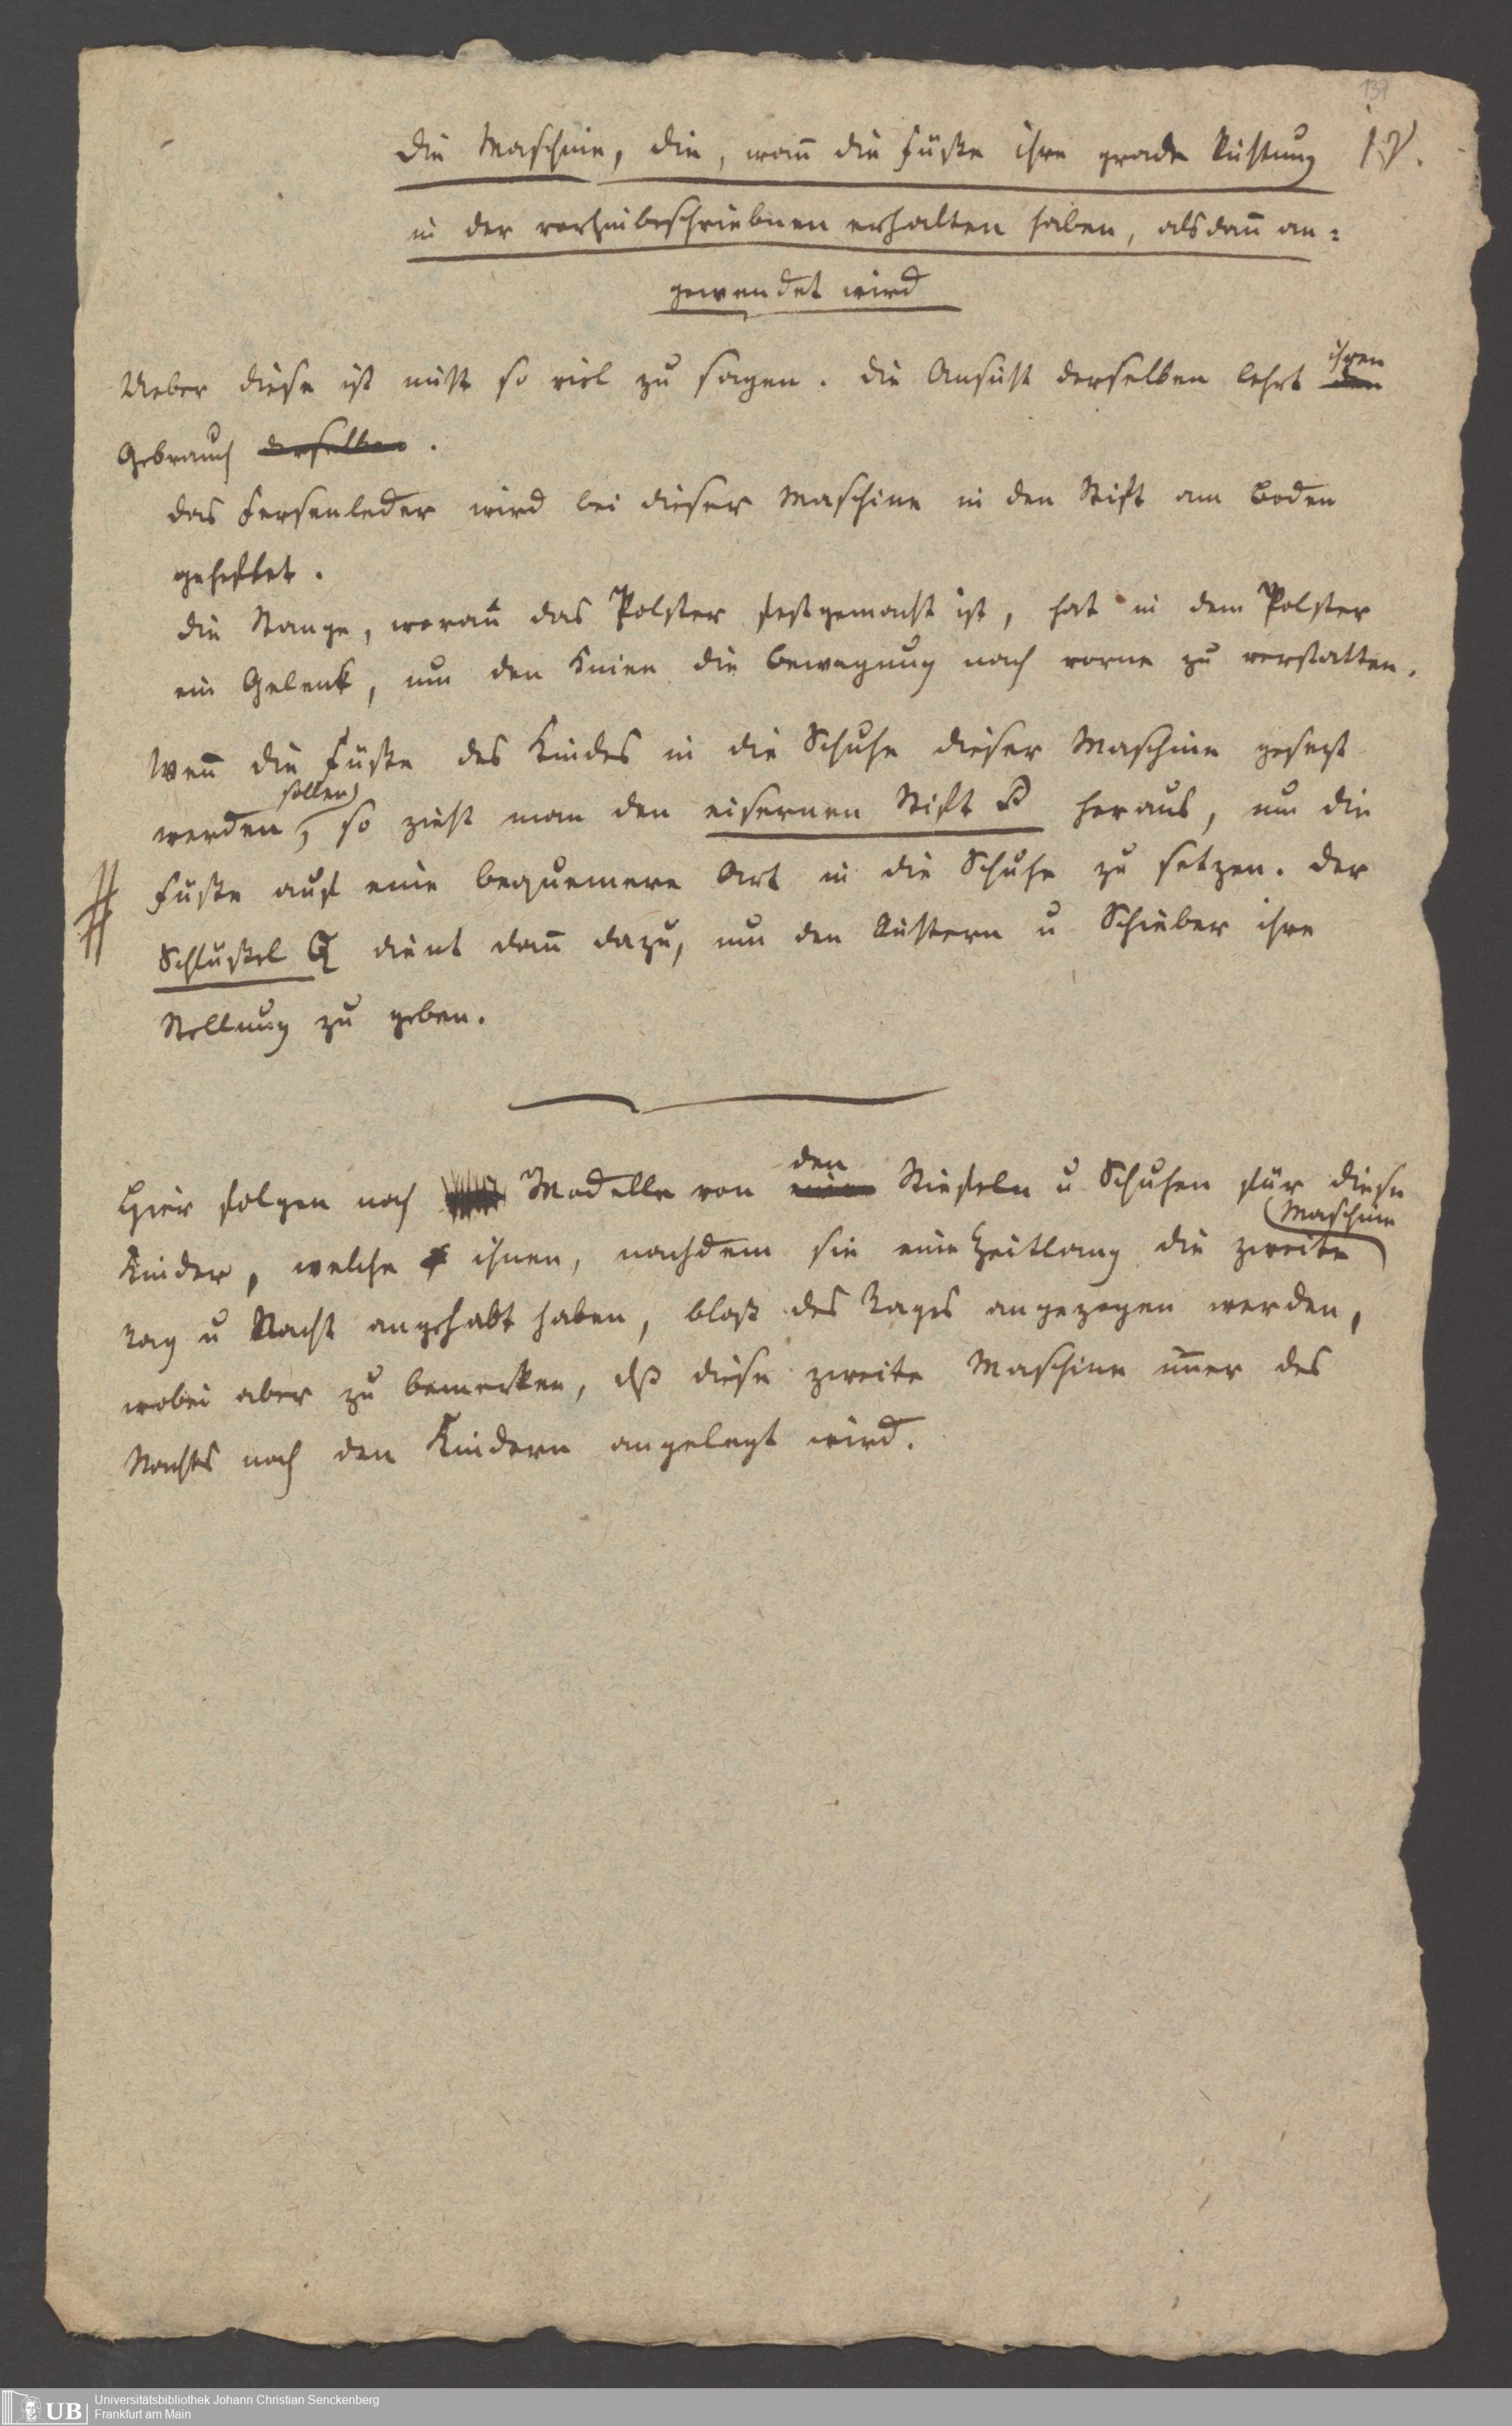 137
IV.
Die Maschine, die, wann die Füße ihre grade Richtung
in der vorhinbeschriebnen erhalten haben, alsdann an=
gewendet wird
Ueber diese ist nicht so viel zu sagen. Die Ansicht derselben lehrt ihren den
Gebrauch derselben.
Das Fersenleder wird bei dieser Maschine in den Stift am Boden
geheftet.
Die Stange, woran das Polster festgemacht ist, hat in dem Polster
ein Gelenk, um den Knien die Bewegung nach vorne zu verstatten.
Wenn die Füße des Kindes in die Schuhe dieser Maschine gesezt
werden sollen, so zieht man den eisernen Stift heraus, um die
Füße auf eine bequemere Art in die Schuhe zu setzen. Der
Schlüßel Q dient dann dazu, um den u Schieber ihre
Stellung zu geben.
Hier folgen noch Modelle von den Stiefeln u Schuhen für diese
Kinder, welche ihnen, nachdem sie eine Zeitlang die zweite Maschine
Tag u Nacht angehabt haben, bloß des Tages angezogen werden,
wobei aber zu bemerken, dß diese zweite Maschine im̅er des
Nachts noch den Kindern angelegt wird.
UB
Universitätsbibliothek Johann Christian Senckenberg
Frankfurt am Main